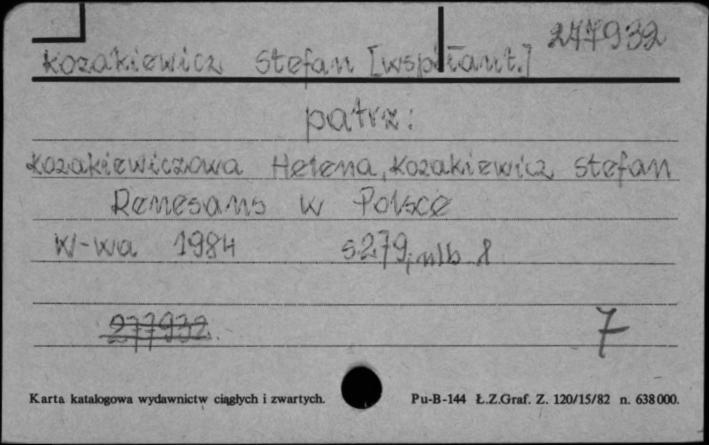 277932
Kozakiewicz Stefan [współaut.]
patrz:
Kozakiewiczowa Helena, Kozakiewicz Stefan
Renesans w Polsce
W-wa 1984 s. 279, nlb 1
277932 7
Karta katalogowa wydawnictw ciągłych i zwartych. Pu-B-144 Ł.Z.Graf. Z. 120/15/82 n. 638000.